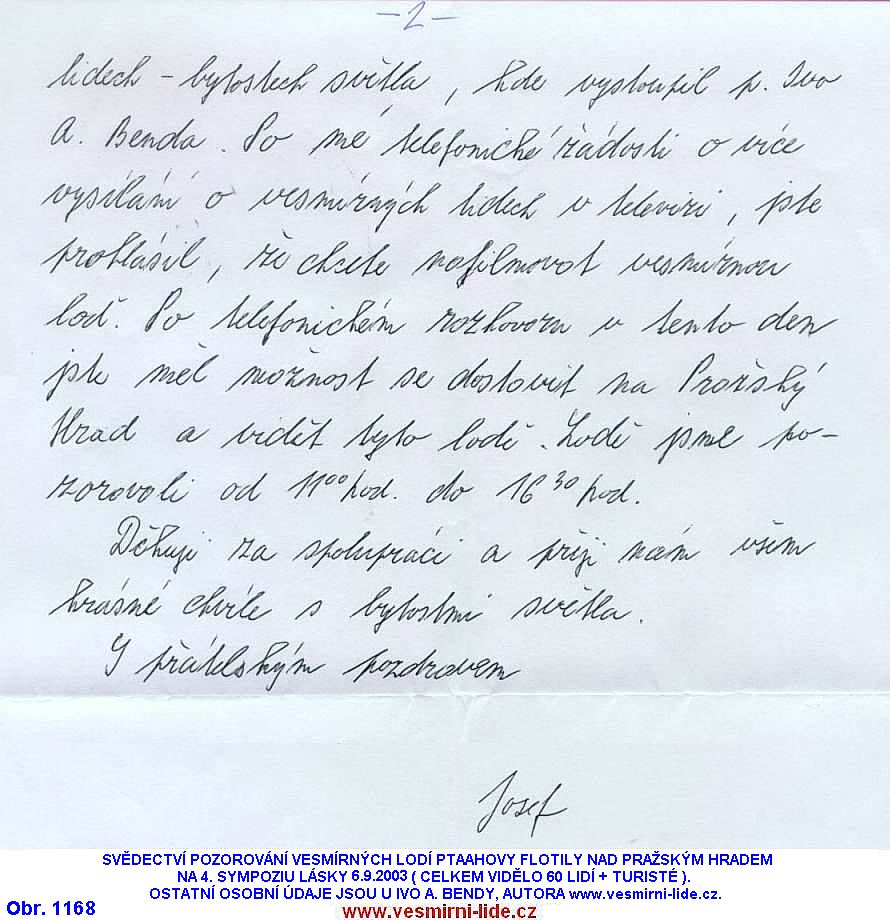 -2-
lidech - bytostech světla, kde vystoupil p. Ivo
A. Benda. Po mé telefonické žádosti o více
vysílání o vesmírných lidech v televizi, jste
prohlásil, že chcete nafilmovat vesmírnou
loď. Po telefonickém rozhovoru v tento den
jste měl možnost se dostavit na Pražský
Hrad a vidět tyto lodě. Lodě jsme po-
zorovali od 11 00 hod. do 16 30 hod.
Děkuji za spolupráci a přeji nám všem
krásné chvíle s bytostmi světla.
S přátelským pozdravem
Josef
SVĚDECTVÍ POZOROVÁNÍ VESMÍRNÝCH LODÍ PTAAHOVY FLOTILY NAD PRAŽSKÝM HRADEM
NA 4. SYMPOZIU LÁSKY 6.9.2003 ( CELKEM VIDĚLO 60 LIDÍ + TURISTÉ ).
OSTATNÍ OSOBNÍ ÚDAJE JSOU U IVO A. BENDY, AUTORA www.vesmirni-lide.cz.
Obr. 1168
www.vesmirni-lide.cz